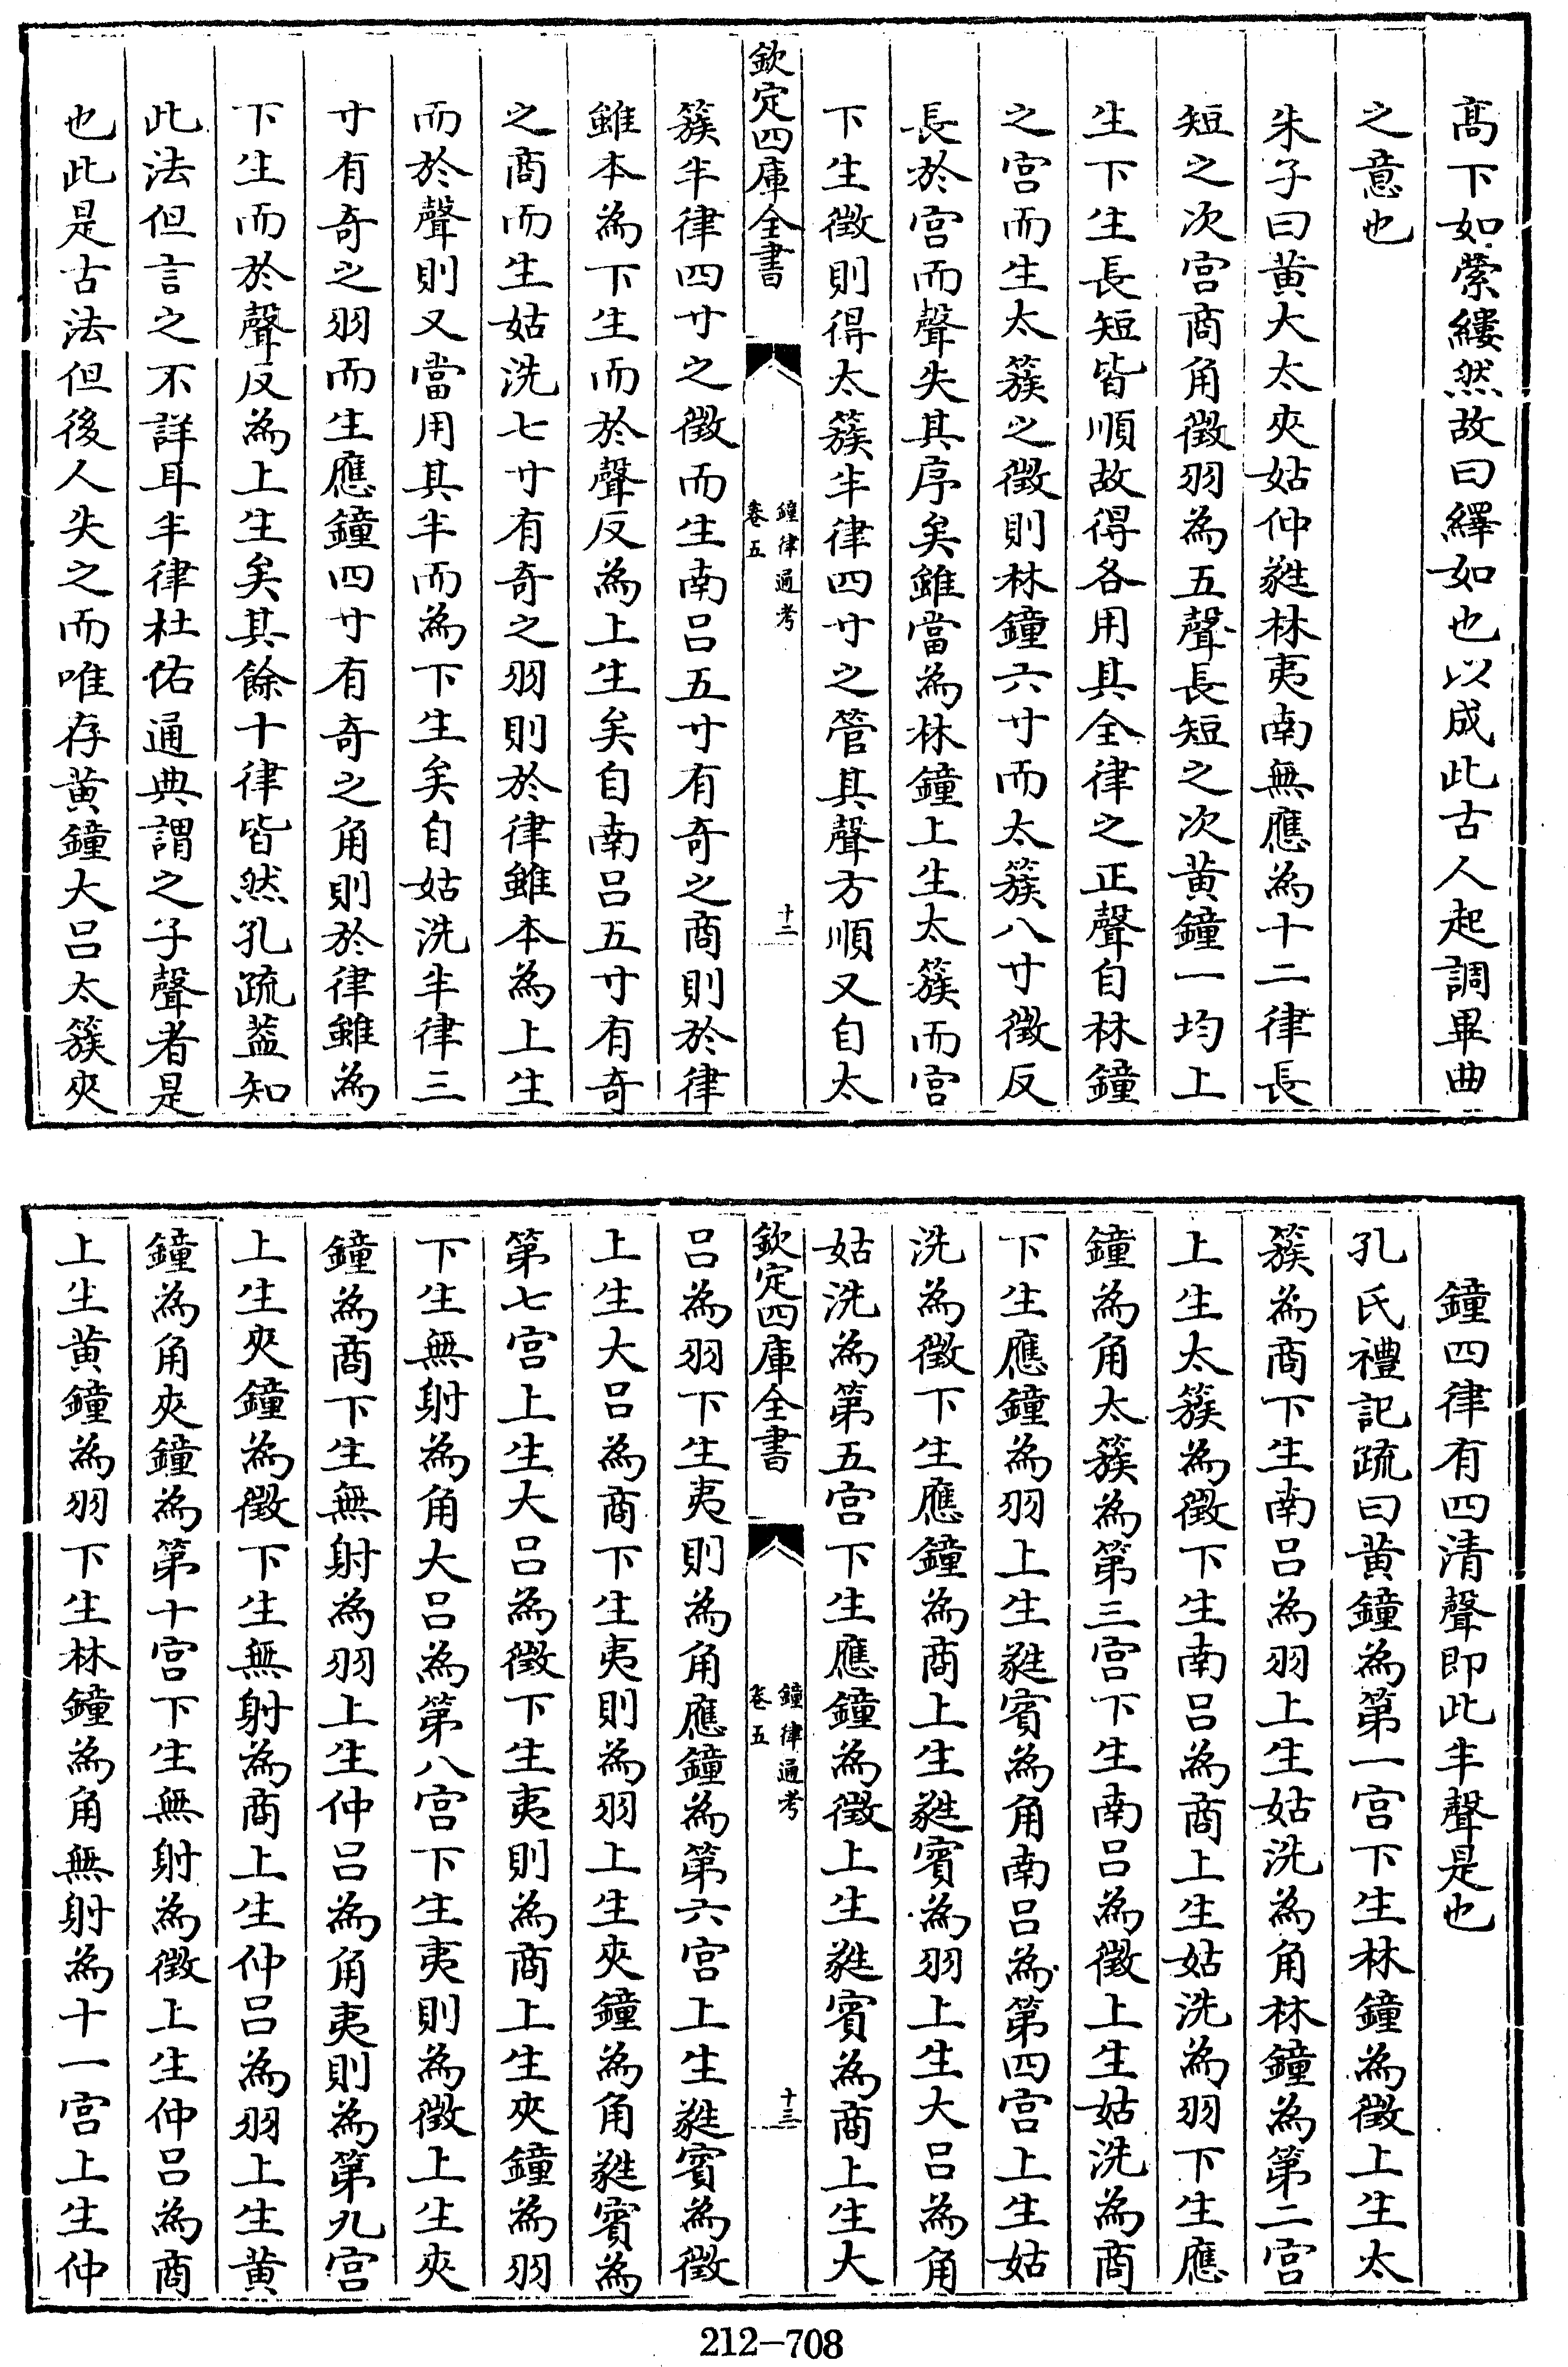 高下如縈縷然故曰繹如也以成此古人起調畢曲
之意也
朱子曰黄大太夾姑仲蕤林夷南無應為十二律長
短之次宫商角徵羽為五聲長短之次黄鐘一均上
生下生長短皆順故得各用其全律之正聲自林鐘
之宫而生太簇之徵則林鐘六寸而太簇八寸徵反
長於宫而聲失其序矣雖當為林鐘上生太簇而宫
下生徵則得太簇半律四寸之管其聲方順又自太
欽定四庫全書
鐘律通考
卷五
十二
簇半律四寸之徵而生南吕五寸有奇之商則於律
雖本為下生而於聲反為上生矣自南吕五寸有奇
之商而生姑洗七寸有奇之羽則於律雖本為上生
而於聲則又當用其半而為下生矣自姑洗半律三
寸有奇之羽而生應鐘四寸有奇之角則於律雖為
下生而於聲反為上生矣其餘十律皆然孔疏葢知
此法但言之不詳耳半律杜佑通典謂之子聲者是
也此是古法但後人失之而唯存黄鐘大吕太簇夾
鐘四律有四清聲即此半聲是也
孔氏禮記疏曰黄鐘為第一宫下生林鐘為徵上生太
簇為商下生南吕為羽上生姑洗為角林鐘為第二宫
上生太簇為徵下生南吕為商上生姑洗為羽下生應
鐘為角太簇為第三宫下生南吕為徵上生姑洗為商
下生應鐘為羽上生蕤賓為角南吕為第四宫上生姑
洗為徵下生應鐘為商上生蕤賓為羽上生大吕為角
姑洗為第五宫下生應鐘為徵上生蕤賓為商上生大
欽定四庫全書
鐘律通考
卷五
十三
吕為羽下生夷則為角應鐘為第六宫上生蕤賓為徵
上生大吕為商下生夷則為羽上生夾鐘為角蕤賓為
第七宫上生大吕為徵下生夷則為商上生夾鐘為羽
下生無射為角大吕為第八宫下生夷則為徵上生夾
鐘為商下生無射為羽上生仲吕為角夷則為第九宫
上生夾鐘為徵下生無射為商上生仲吕為羽上生黄
鐘為角夾鐘為第十宫下生無射為徵上生仲吕為商
上生黄鐘為羽下生林鐘為角無射為十一宫上生仲
212-708